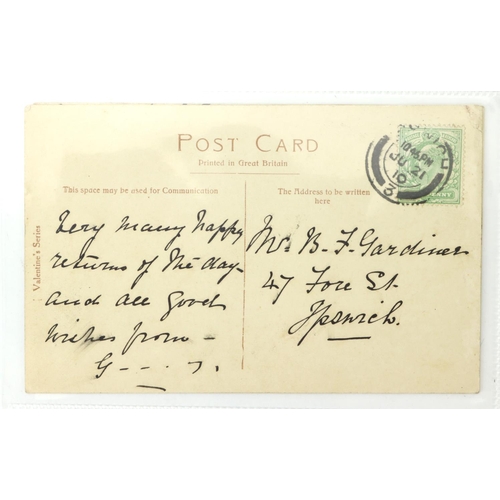 POST CARD
Printed in Great Britain
This space may be used for Communication
The Address to be written
here
Valentine's Series
Very many happy
returns of the day-
and all good
wishes from -
G - - . .
Mr. B. F. Gardiner
47 Fore St.
Ipswich.
10.45 PM
JU 21
10
3